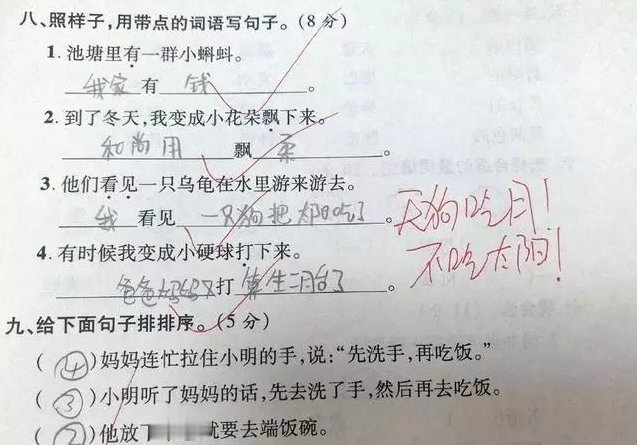 八、照样子，用带点的词语写句子。(8分)
1. 池塘里有一群小蝌蚪。
我家 有 钱 。
2. 到了冬天，我变成小花朵飘下来。
和尚用 飘 柔 。
3. 他们看见一只乌龟在水里游来游去。
我 看见 一只狗把太阳吃了 。
天狗吃月！
不吃太阳！
4. 有时候我变成小硬球打下来。
爸爸妈妈又打 算生二胎了 。
九、给下面句子排排序。(5分)
(④)妈妈连忙拉住小明的手，说：“先洗手，再吃饭。”
(③)小明听了妈妈的话，先去洗了手，然后再去吃饭。
(②)他放下 就要去端饭碗。